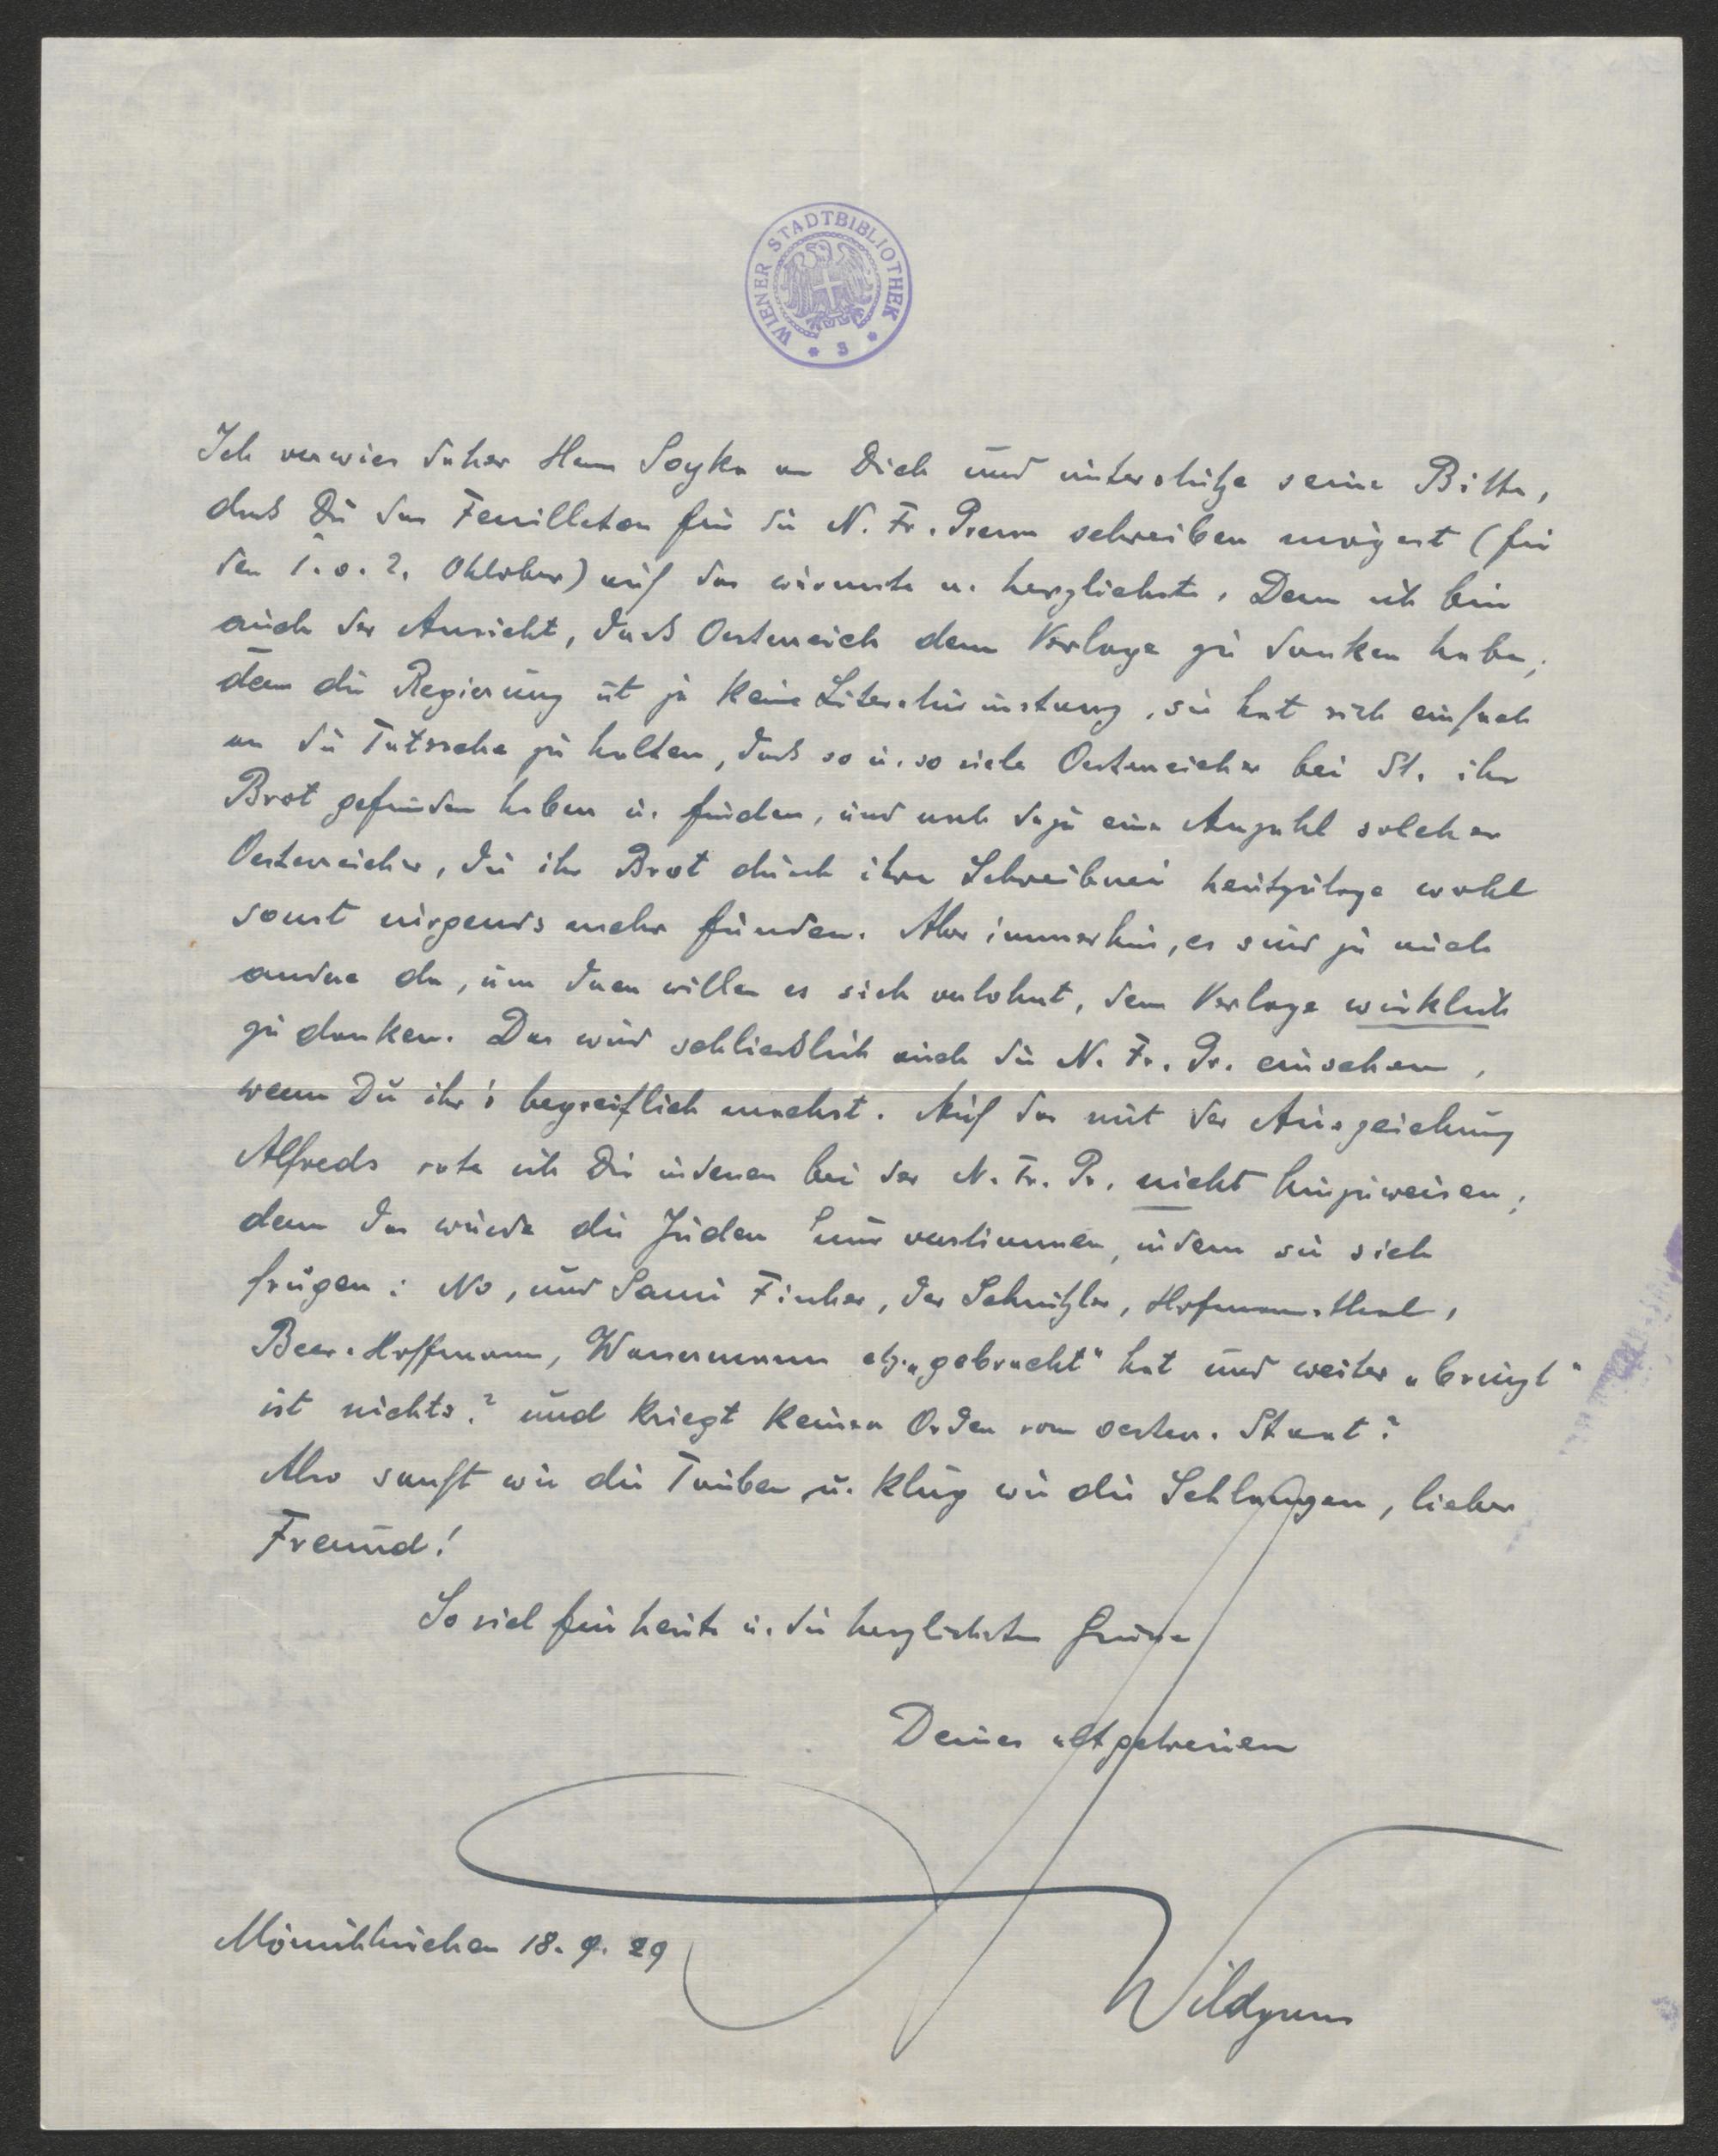 WIENER STADTBIBLIOTHEK * 3 *
Ich verwies daher Herrn Soyka an Dich und unterstütze seine Bitte,
dass Du das Feuilleton für die N. Fr. Presse schreiben mögest (für
den 1. o. 2. Oktober) auf das wärmste u. herzlichste. Denn ich bin
auch der Ansicht, dass Oesterreich dem Verlage zu danken habe;
denn die Regierung ist ja keine Literaturinstanz, sie hat sich einfach
an die Tatsache zu halten, dass so u. so viele Oesterreicher bei St. ihr
Brot gefunden haben u. finden, und noch dazu eine Anzahl solcher
Oesterreicher, die ihr Brot durch ihre Schreiberei heutzutage wohl
sonst nirgends mehr fänden. Aber immerhin, es sind ja auch
andere da, um deren willen es sich verlohnt, dem Verlage wirklich
zu danken. Das wird schliesslich auch die N. Fr. Pr. einsehen,
wenn Du ihr's begreiflich machst. Auf das mit der Auszeichnung
Alfreds rate ich Dir indessen bei der N. Fr. Pr. nicht hinzuweisen;
denn das würde die Juden nur verstimmen, indem sie sich
frügen: No, und Sami Fischer, der Schnitzler, Hofmannsthal,
Beer-Hoffmann, Wassermann etz. „gebracht“ hat und weiter „bringt“
ist nichts? und kriegt keinen Orden vom oesterr. Staat?
Also sanft wie die Tauben u. klug wie die Schlangen, lieber
Freund!
So viel für heute u. die herzlichsten Grüsse
Deines altgetreuen
Wildgans
Mönichkirchen 18. 9. 29